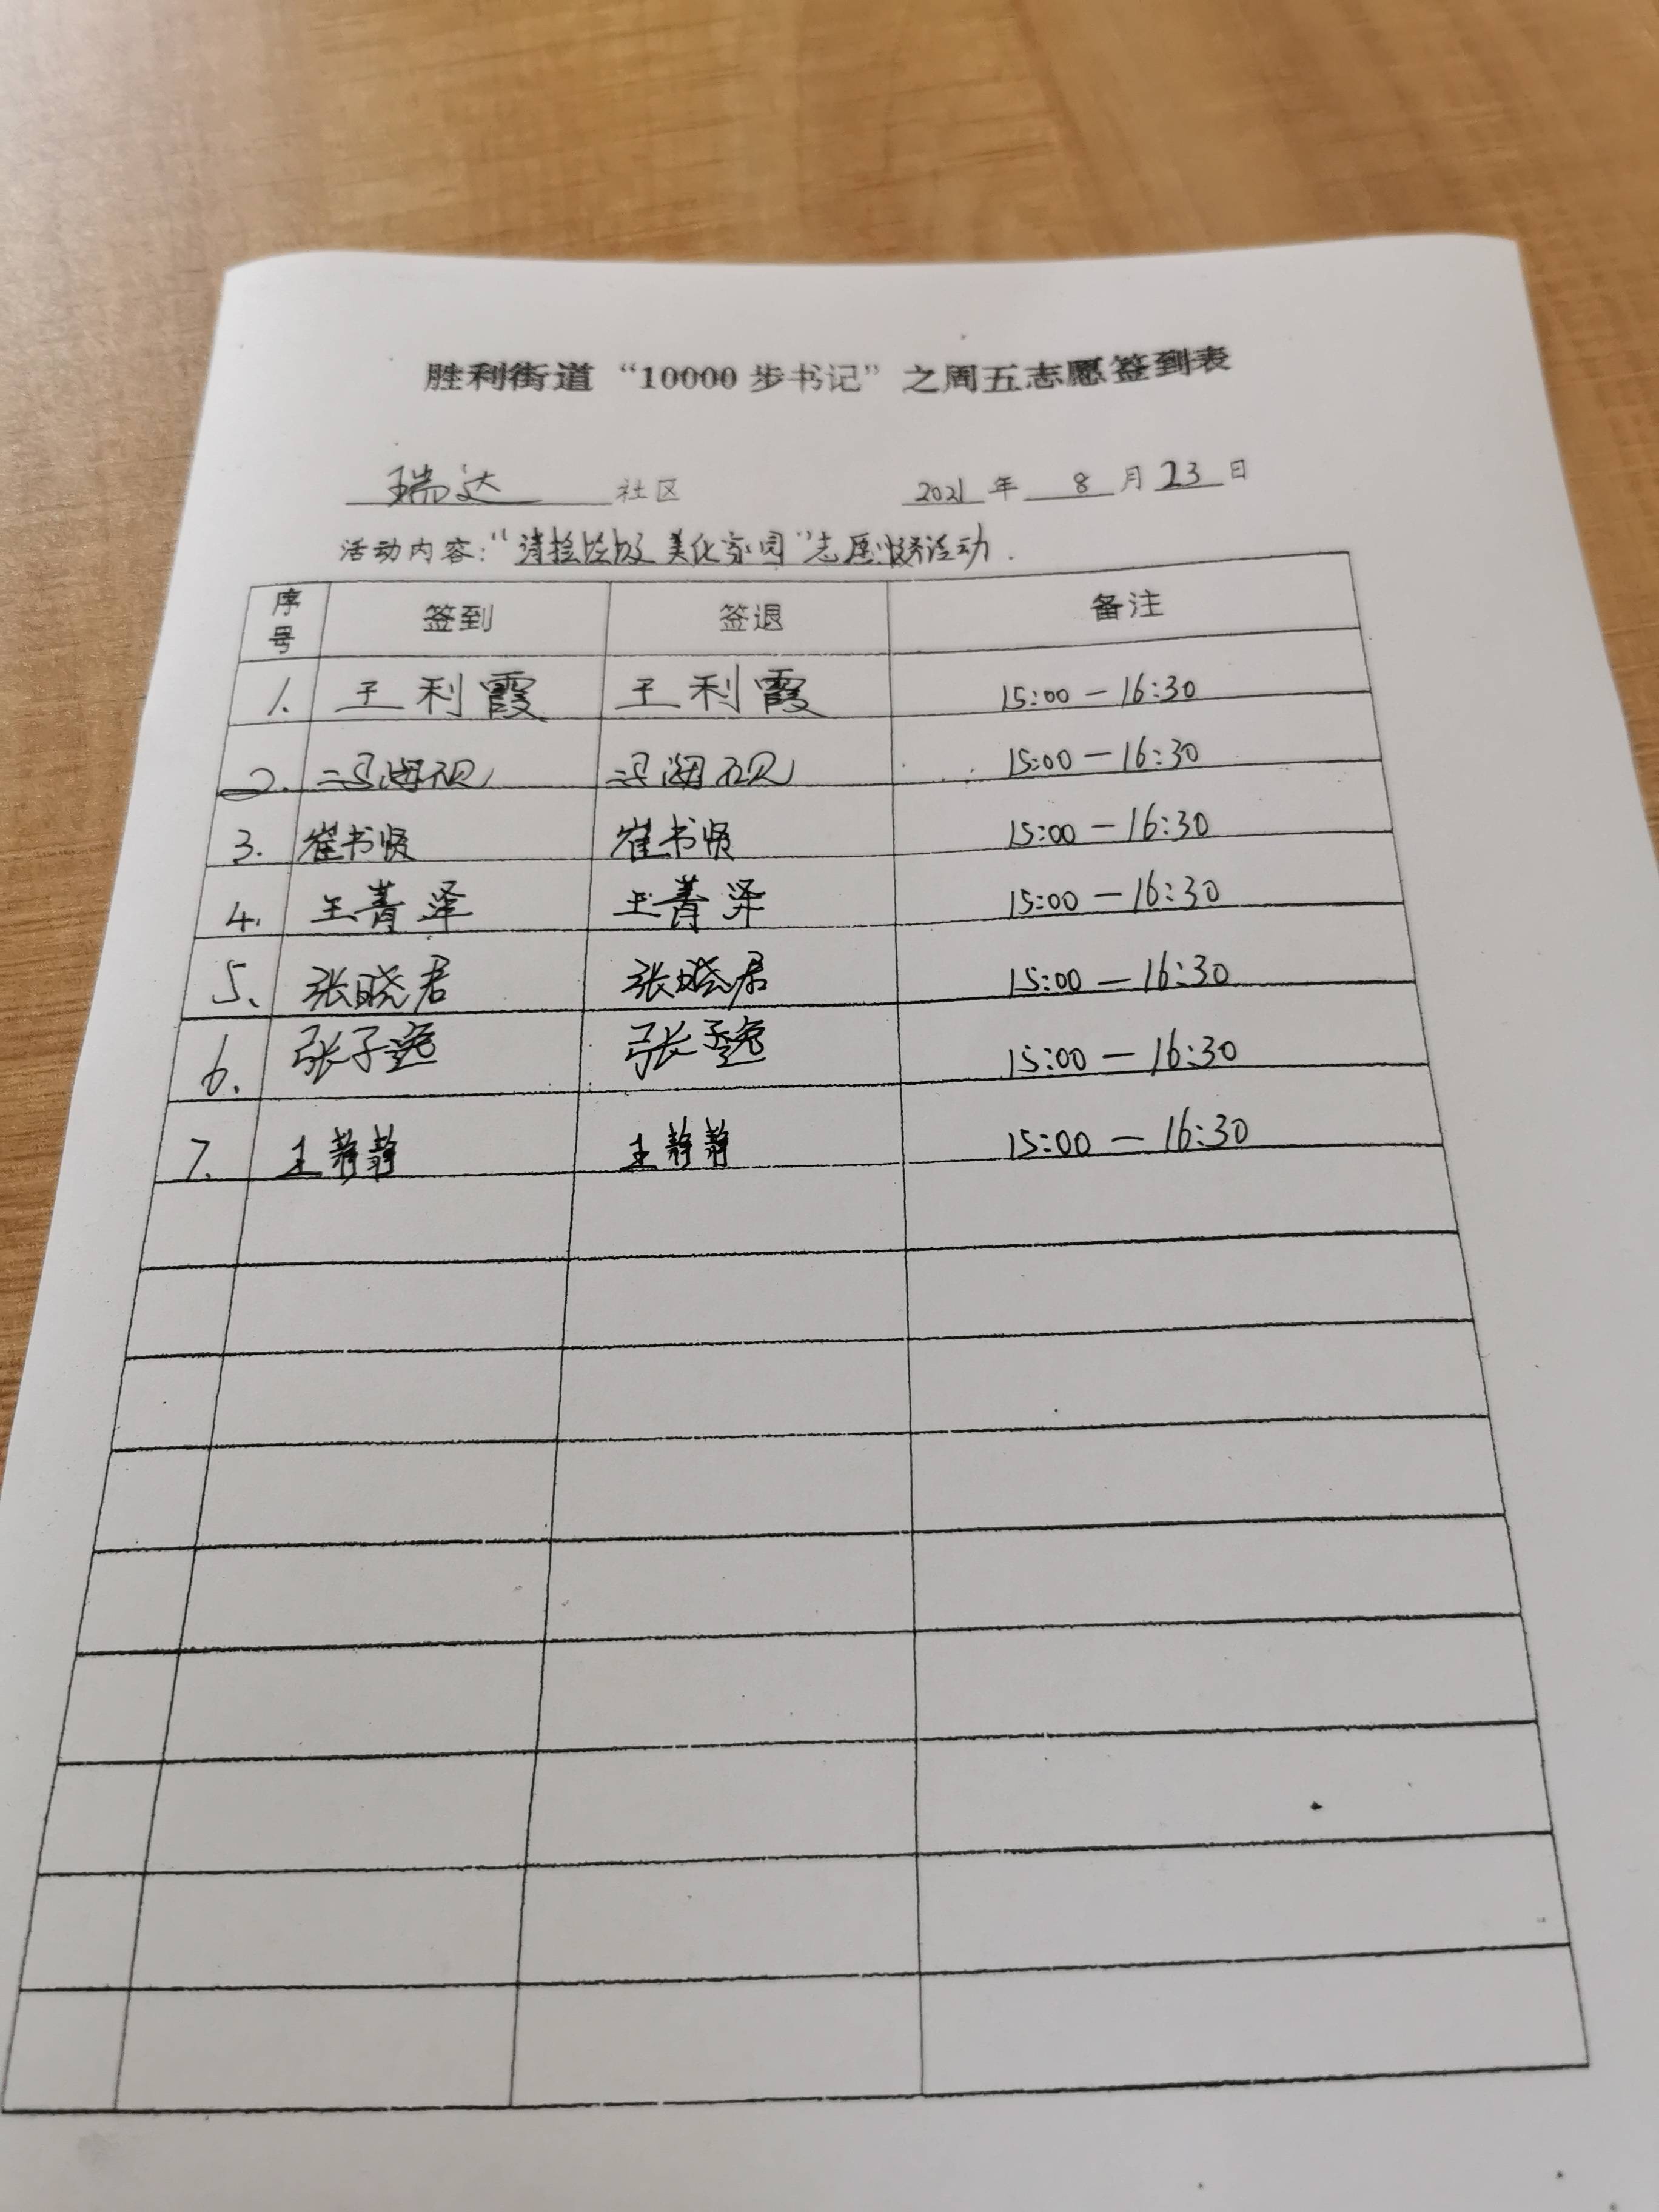 胜利街道“10000步书记”之周五志愿签到表
瑞达 社区 2021年 8月23日
活动内容：“清捡垃圾 美化家园”志愿服务活动.
序号 签到 签退 备注
1. 王利霞 王利霞 15:00—16:30
2. 冯海砚 冯海砚 15:00—16:30
3. 崔书贤 崔书贤 15:00—16:30
4. 王菁泽 王菁泽 15:00—16:30
5. 张晓君 张晓君 15:00—16:30
6. 张子逸 张子逸 15:00—16:30
7. 王静静 王静静 15:00—16:30